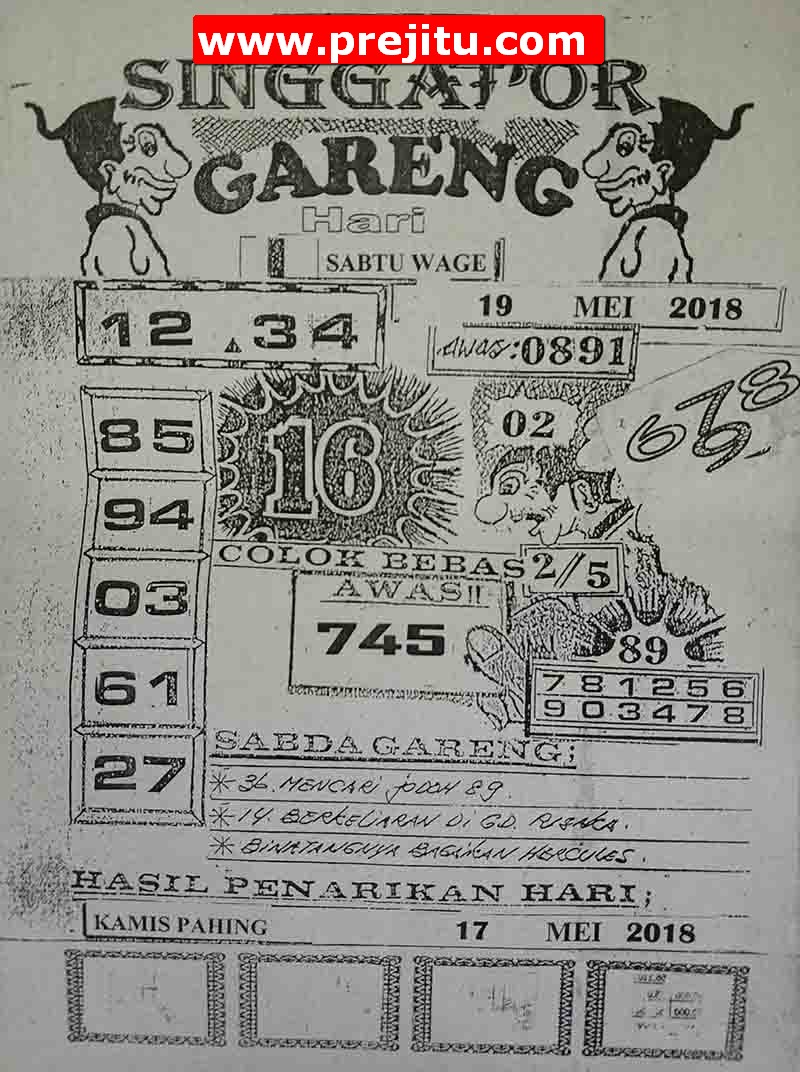 www.prejitu.com
SINGGAPOR
GARENG
Hari
SABTU WAGE
19 MEI 2018
12.34
AWAS:0891
85
94
03
61
27
16
02
678
9
COLOK BEBAS 2/5
AWAS!!
745
89
781256
903478
SABDA GARENG;
* 36. MENCARI JODOH 89.
* 14. BERKELIARAN Di G.D.
* BINATANGNYA BAGAIKAN HERCULES.
HASIL PENARIKAN HARI;
KAMIS PAHING 17 MEI 2018